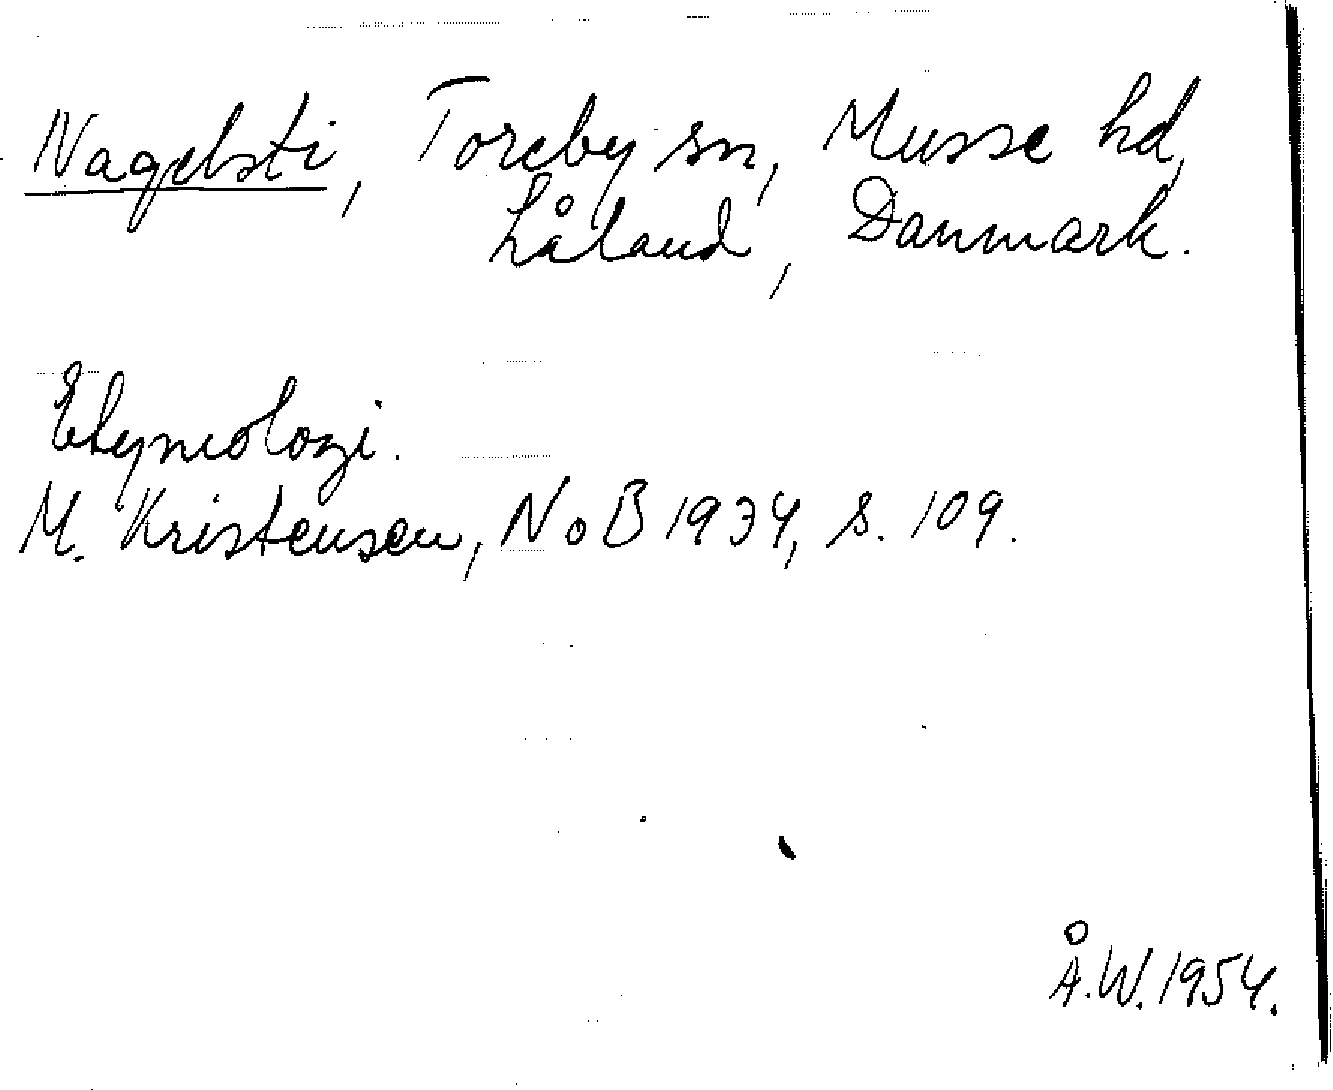 Nagelsti, Toreby sn, Musse hd,
Låland, Danmark.
Etymologi.
M. Kristensen, NoB 1934, s. 109.
Å.W. 1954.